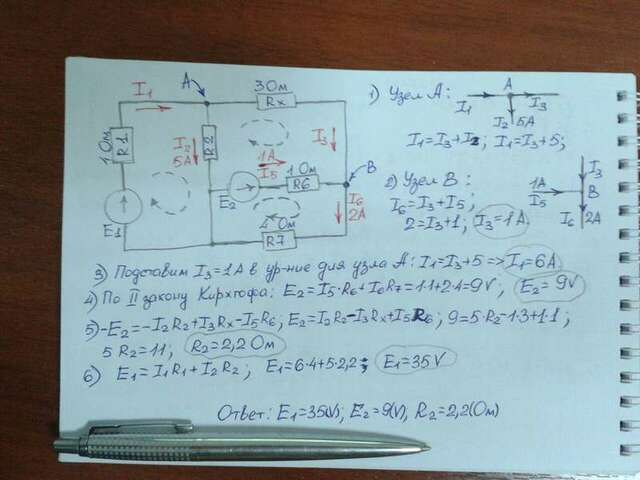 A
I1
3 Ом
Rx
1 Ом
R1
I2
5A
R2
I3
1A
I5
1 Ом
R6
B
E2
I6
2A
E1
4 Ом
R7
1) Узел A:
A
I1
I3
I2 5A
I1=I3+I2; I1=I3+5;
2) Узел B:
I6=I3+I5;
2=I3+1; I3=1A
I3
1A
I5
B
I6
2A
3) Подставим I3=1A в ур-ние для узла A: I1=I3+5=>I1=6A
4) По II закону Кирхгофа: E2=I5·R6+I6R7=1·1+2·4=9V; E2=9V
5) -E2=-I2R2+I3Rx-I5R6; E2=I2R2-I3Rx+I5R6; 9=5·R2-1·3+1·1;
5R2=11; R2=2,2 Ом
6) E1=I1R1+I2R2; E1=6·4+5·2,2; E1=35V
Ответ: E1=35(V); E2=9(V), R2=2,2(Ом)